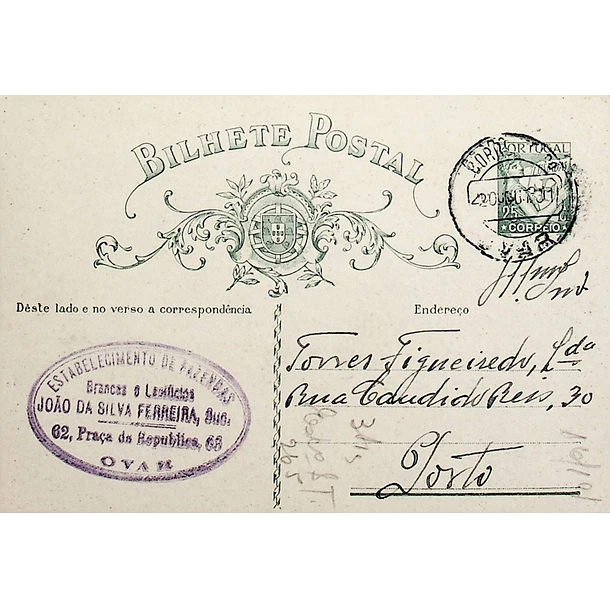 BILHETE POSTAL
PORTUGAL
25
CORREIO
Dêste lado e no verso a correspondência
Endereço
ESTABELECIMENTO DE FAZENDAS
Brancas e Lanifícios
JOÃO DA SILVA FERREIRA, Suc.
62, Praça da Republica, 63
OVAR
Torres Figueiredo, Lda
Rua Candido Reis, 30
Porto
265